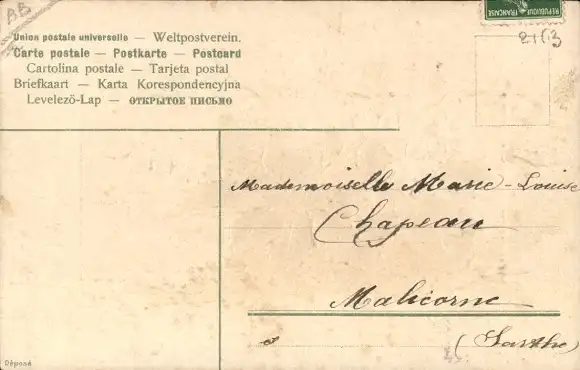 AB
REPUBLIQUE FRANÇAISE
2163
Union postale universelle — Weltpostverein.
Carte postale — Postkarte — Postcard
Cartolina postale — Tarjeta postal
Briefkaart — Karta Korespondencyjna
Levelező-Lap — ОТКРЫТОЕ ПИСЬМО
Mademoiselle Marie-Louise
Chapeau
Malicorne
(Sarthe)
Déposé